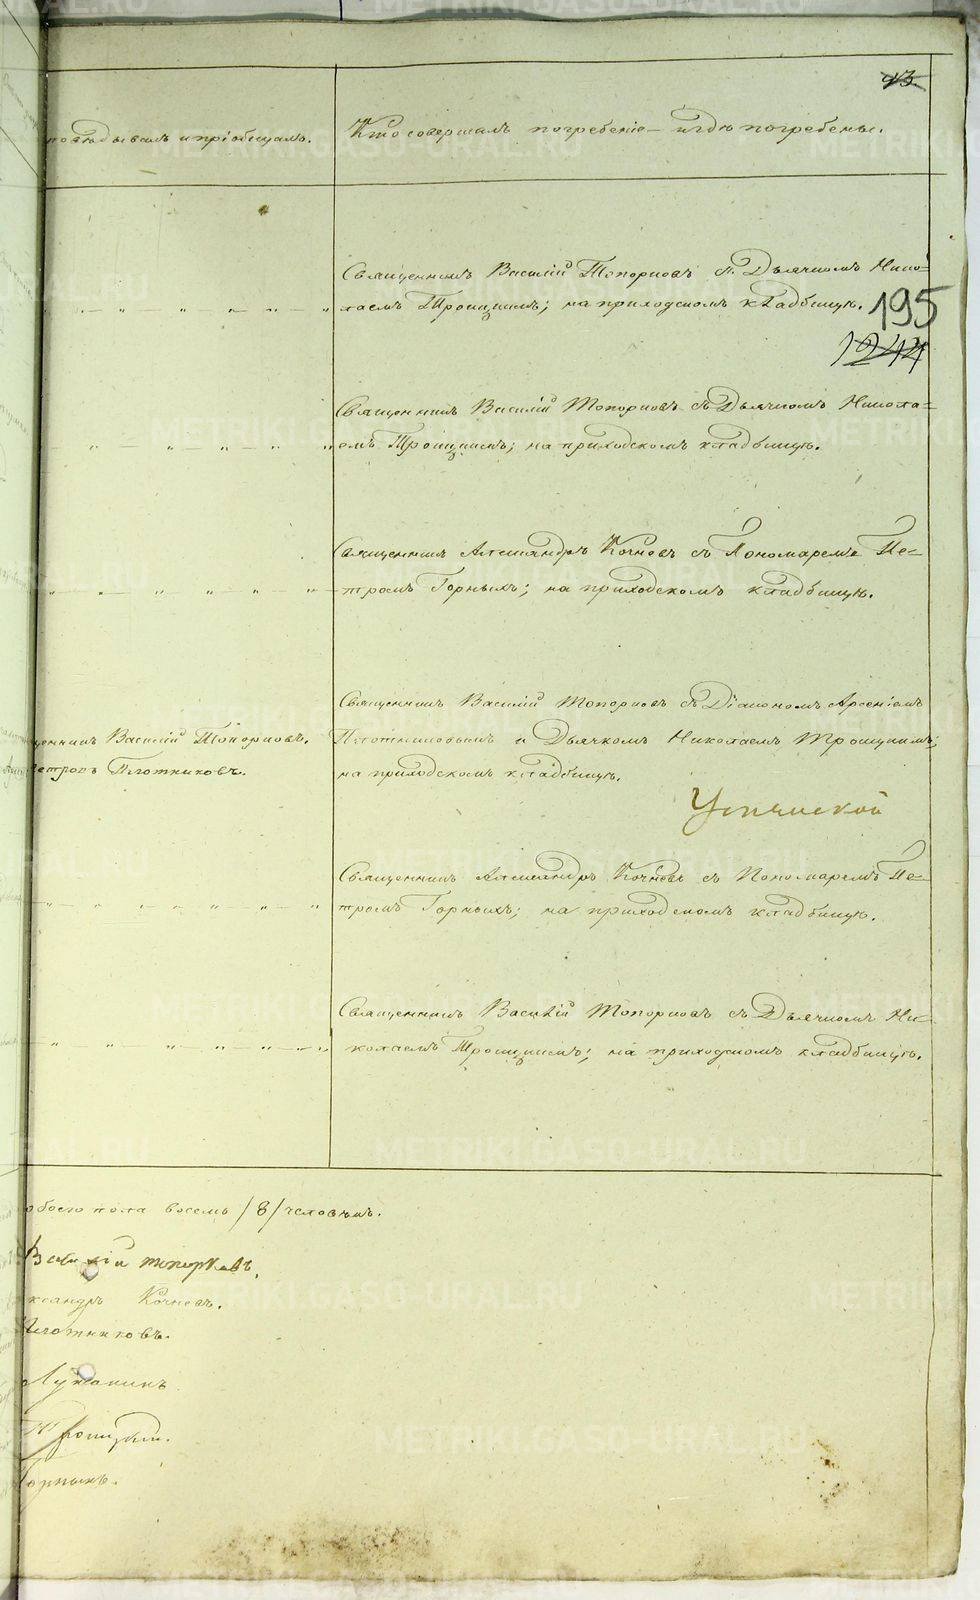 93
повѣдывалъ и пріобщалъ.
Кто совершалъ погребеніе и гдѣ погребены.
Священникъ Василій Топорковъ съ Дьячкомъ Нико-
лаемъ Троицкимъ; на приходскомъ кладбищѣ.
195
1244
Священникъ Василій Топорковъ съ Дьячкомъ Никола-
емъ Троицкимъ; на приходскомъ кладбищѣ.
Священникъ Александръ Кочневъ съ Пономаремъ Пе-
тромъ Горныхъ; на приходскомъ кладбищѣ.
Священникъ Василій Топорковъ съ Діакономъ Арсеніемъ
щенникъ Василій Топорковъ.
Плотниковымъ и Дьячкомъ Николаемъ Троицкимъ;
Петровъ Плотниковъ.
на приходскомъ кладбищѣ.
Успенской
Священникъ Александръ Кочневъ съ Пономаремъ Пе-
тромъ Горныхъ; на приходскомъ кладбищѣ.
Священникъ Василій Топорковъ съ Дьячкомъ Ни-
колаемъ Троицкимъ; на приходскомъ кладбищѣ.
обоего пола восемь /8/ человѣкъ.
Василій Топорковъ.
ксандръ Кочневъ.
Плотниковъ.
Лужанинъ
Троицкій.
Горныхъ.
METRIKI.GASO-URAL.RU